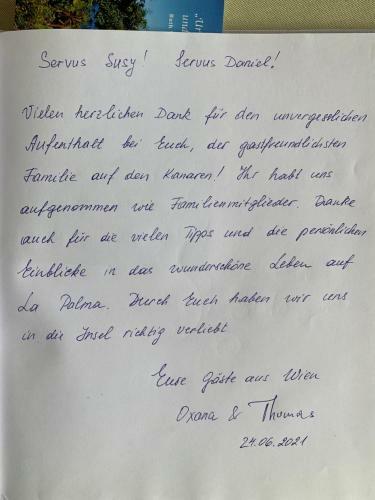 Servus Susy! Servus Daniel!
Vielen herzlichen Dank für den unvergesslichen
Aufenthalt bei Euch, der gastfreundlichsten
Familie auf den Kanaren! Ihr habt uns
aufgenommen wie Familienmitglieder. Danke
auch für die vielen Tipps und die persönlichen
Einblicke in das wunderschöne Leben auf
La Palma. Durch Euch haben wir uns
in die Insel richtig verliebt
Eure Gäste aus Wien
Oxana & Thomas
24.06.2021